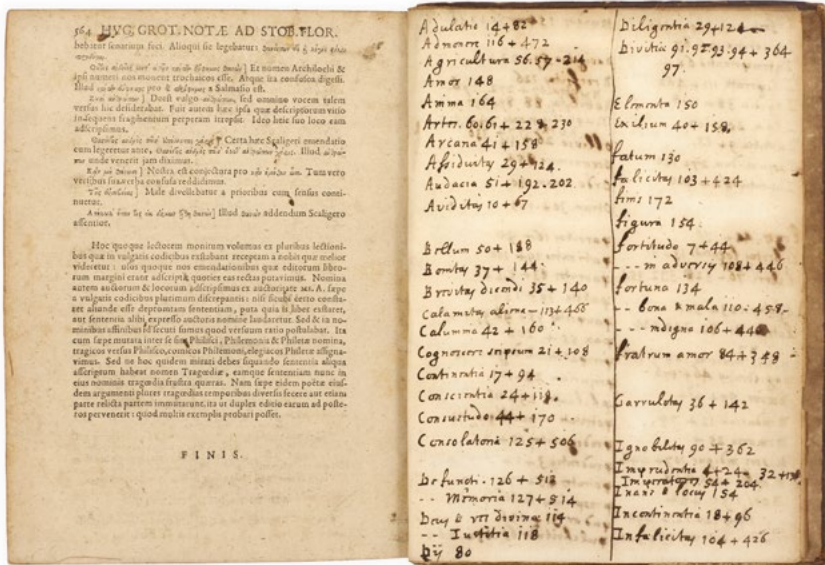 564 HVG. GROT. NOTÆ AD STOB. FLOR.
hebient senarium feci. Alioqui sic legebatur:
] Et nomen Archilochi &
ipsi numeri nos monent trochaicos esse. Atque ita confusos digessi.
Illud pro à Salmasio est.
] Deest vulgo sed omnino vocem talem
versus hic desiderabat. Fuit autem hæc ipsa quæ descriptorum vitio
in sequens fragmentum perperam irrepsit. Ideo hoc suo loco eam
adscripsimus.
] Certa hæc Scaligeri emendatio
cum legeretur ante, Illud
unde venerit jam diximus.
] Nostra est conjectura pro Tum vero
versibus sua verba confusa reddidimus.
] Male divellebatur a prioribus cum sensus conti-
nuetur.
] Illud addendum Scaligero
assentior.
Hoc quoque lectorem monitum volumus ex pluribus lectioni-
bus quæ in vulgatis codicibus exstabant receptam a nobis quæ melior
videretur: usos quoque nos emendationibus quæ editorum libro-
rum margini erant adscriptæ, quoties eas rectas putavimus. Nomina
autem auctorum & locorum adscripsimus ex auctoritate MS. A. sæpe
a vulgatis codicibus plurimum discrepantis: nisi sicubi certo consta-
ret aliunde esse depromtam sententiam, puta quia is liber exstaret,
aut sententia alibi, expresso auctoris nomine laudaretur. Sed & in no-
minibus affinibus id secuti sumus quod versuum ratio postulabat. Ita
cum sæpe mutata inter se sint Philisci, Philemonis & Philetæ nomina,
tragicos versus Philisco, comicos Philemoni, elegiacos Philetæ assigna-
vimus. Sed nec hoc quidem mirari debes siquando sententia aliqua
ascriptum habeat nomen Tragœdiæ, eamque sententiam nunc in
eius nominis tragœdia frustra quæras. Nam sæpe eidem poëtæ eius-
dem argumenti plures tragœdias temporibus diversis fecere aut etiam
parte relicta partem immutarunt, ita ut duplex editio earum ad poste-
ros pervenerit: quod multis exemplis probari posset.
FINIS.
Adulatio 14+82
Admonere 116+472
Agricultura 56.57-214
Amor 148
Amma 164
Artes. 60.61+228.230
Arcana 41+158
Assiduitas 29+124.
Audacia 51+192.202
Aviditas 10+67
Bellum 50+188
Bonitas 37+144.
Brevitas dicendi 35+140
Calamitas aliena-113+466
Calumnia 42+160
Cognoscere seipsum 21+108
Continentia 17+94
Conscientia 24+118.
Consuetudo 44+170
Consolatoria 125+506
Defuncti. 126+512
-- Memoria 127+514
Deus & res divinæ 114
-- Iustitia 118
Dij 80
Diligentia 29+124
Divitiæ 91.92.93.94+364
97.
Elementa 150
Exilium 40+158.
fatum 130
fælicitas 103+424
finis 172
figura 154.
fortitudo 7+44
--- in adversis 108+446
fortuna 134
-- bona & mala 110-458-
--- indigna 106+440
fratrum amor 84+348
Garrulitas 36+142
Ignobilitas 90+362
Imprudentia 4+24- 32+
Imperatores 54+204
Inane & locus 154
Incontinentia 18+96
Infælicitas 104+426